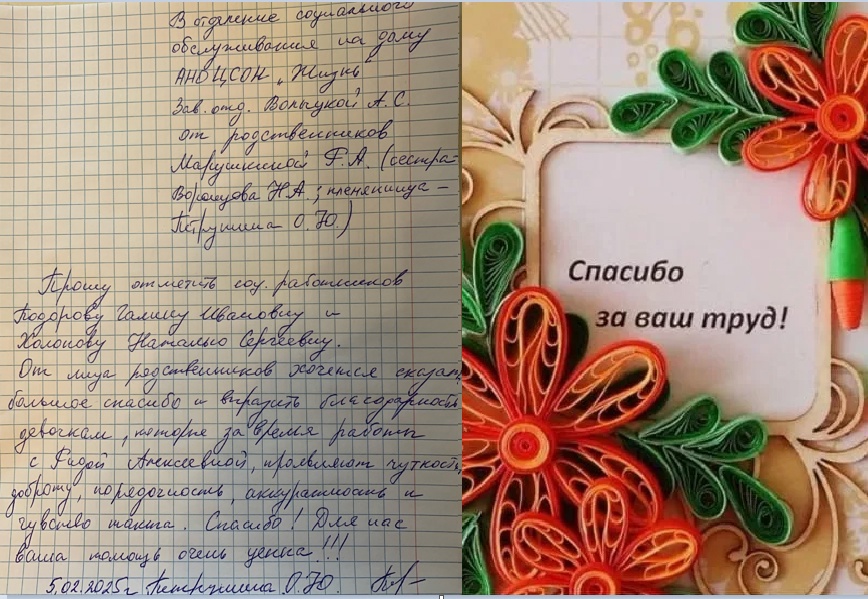 В отделение социального
обслуживания на дому
АНО ЦСОН „Жизнь"
Зав. отд. Волыцкой А.С.
от родственников
Марушкиной Г.А. (сестра-
Воронцова Н.А.; племянница –
Петрунина О.Ю.)
Прошу отметить соц. работников
Тодорову Галину Ивановну и
Холопову Наталью Сергеевну.
От лица родственников хочется сказать
большое спасибо и выразить благодарность
девочкам, которые за время работы
с Алексеевной, проявляют чуткость,
доброту, порядочность, аккуратность и
чувство такта. Спасибо! Для нас
ваша помощь очень ценна!!!
5.02.2025г Петрунина О.Ю.
Спасибо
за ваш труд!